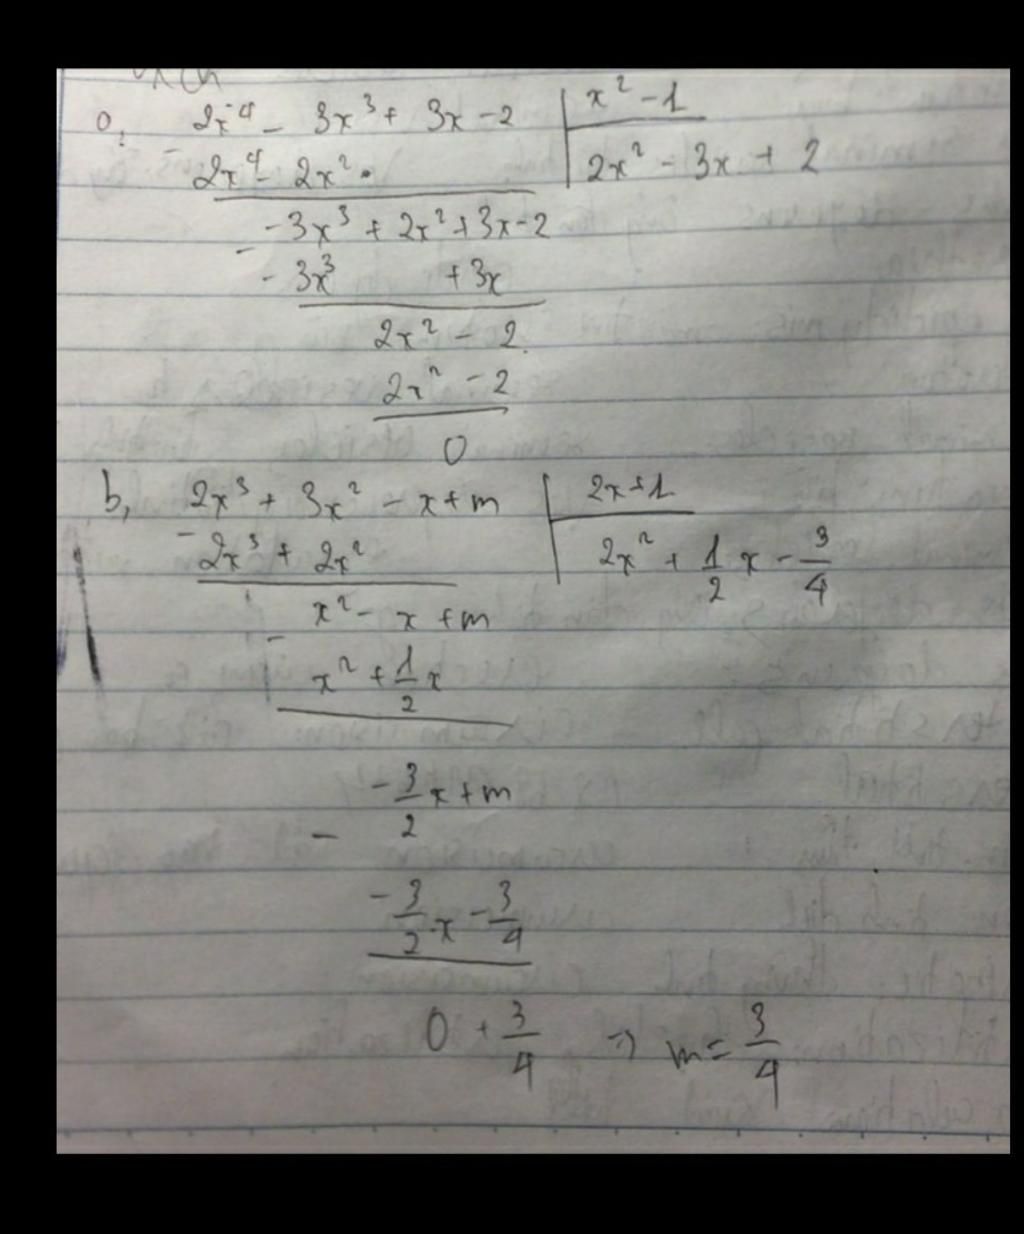 a, 2x⁴ - 3x³ + 3x - 2 | x² - 1
- 2x⁴ - 2x² | 2x² - 3x + 2
-3x³ + 2x² + 3x - 2
- -3x³ + 3x
2x² - 2
2x² - 2
0
b, 2x³ + 3x² - x + m | 2x + 1
- 2x³ + 2x² | 2x² + 1/2 x - 3/4
x² - x + m
- x² + 1/2 x
-3/2 x + m
-
-3/2 x - 3/4
0 + 3/4 => m = 3/4